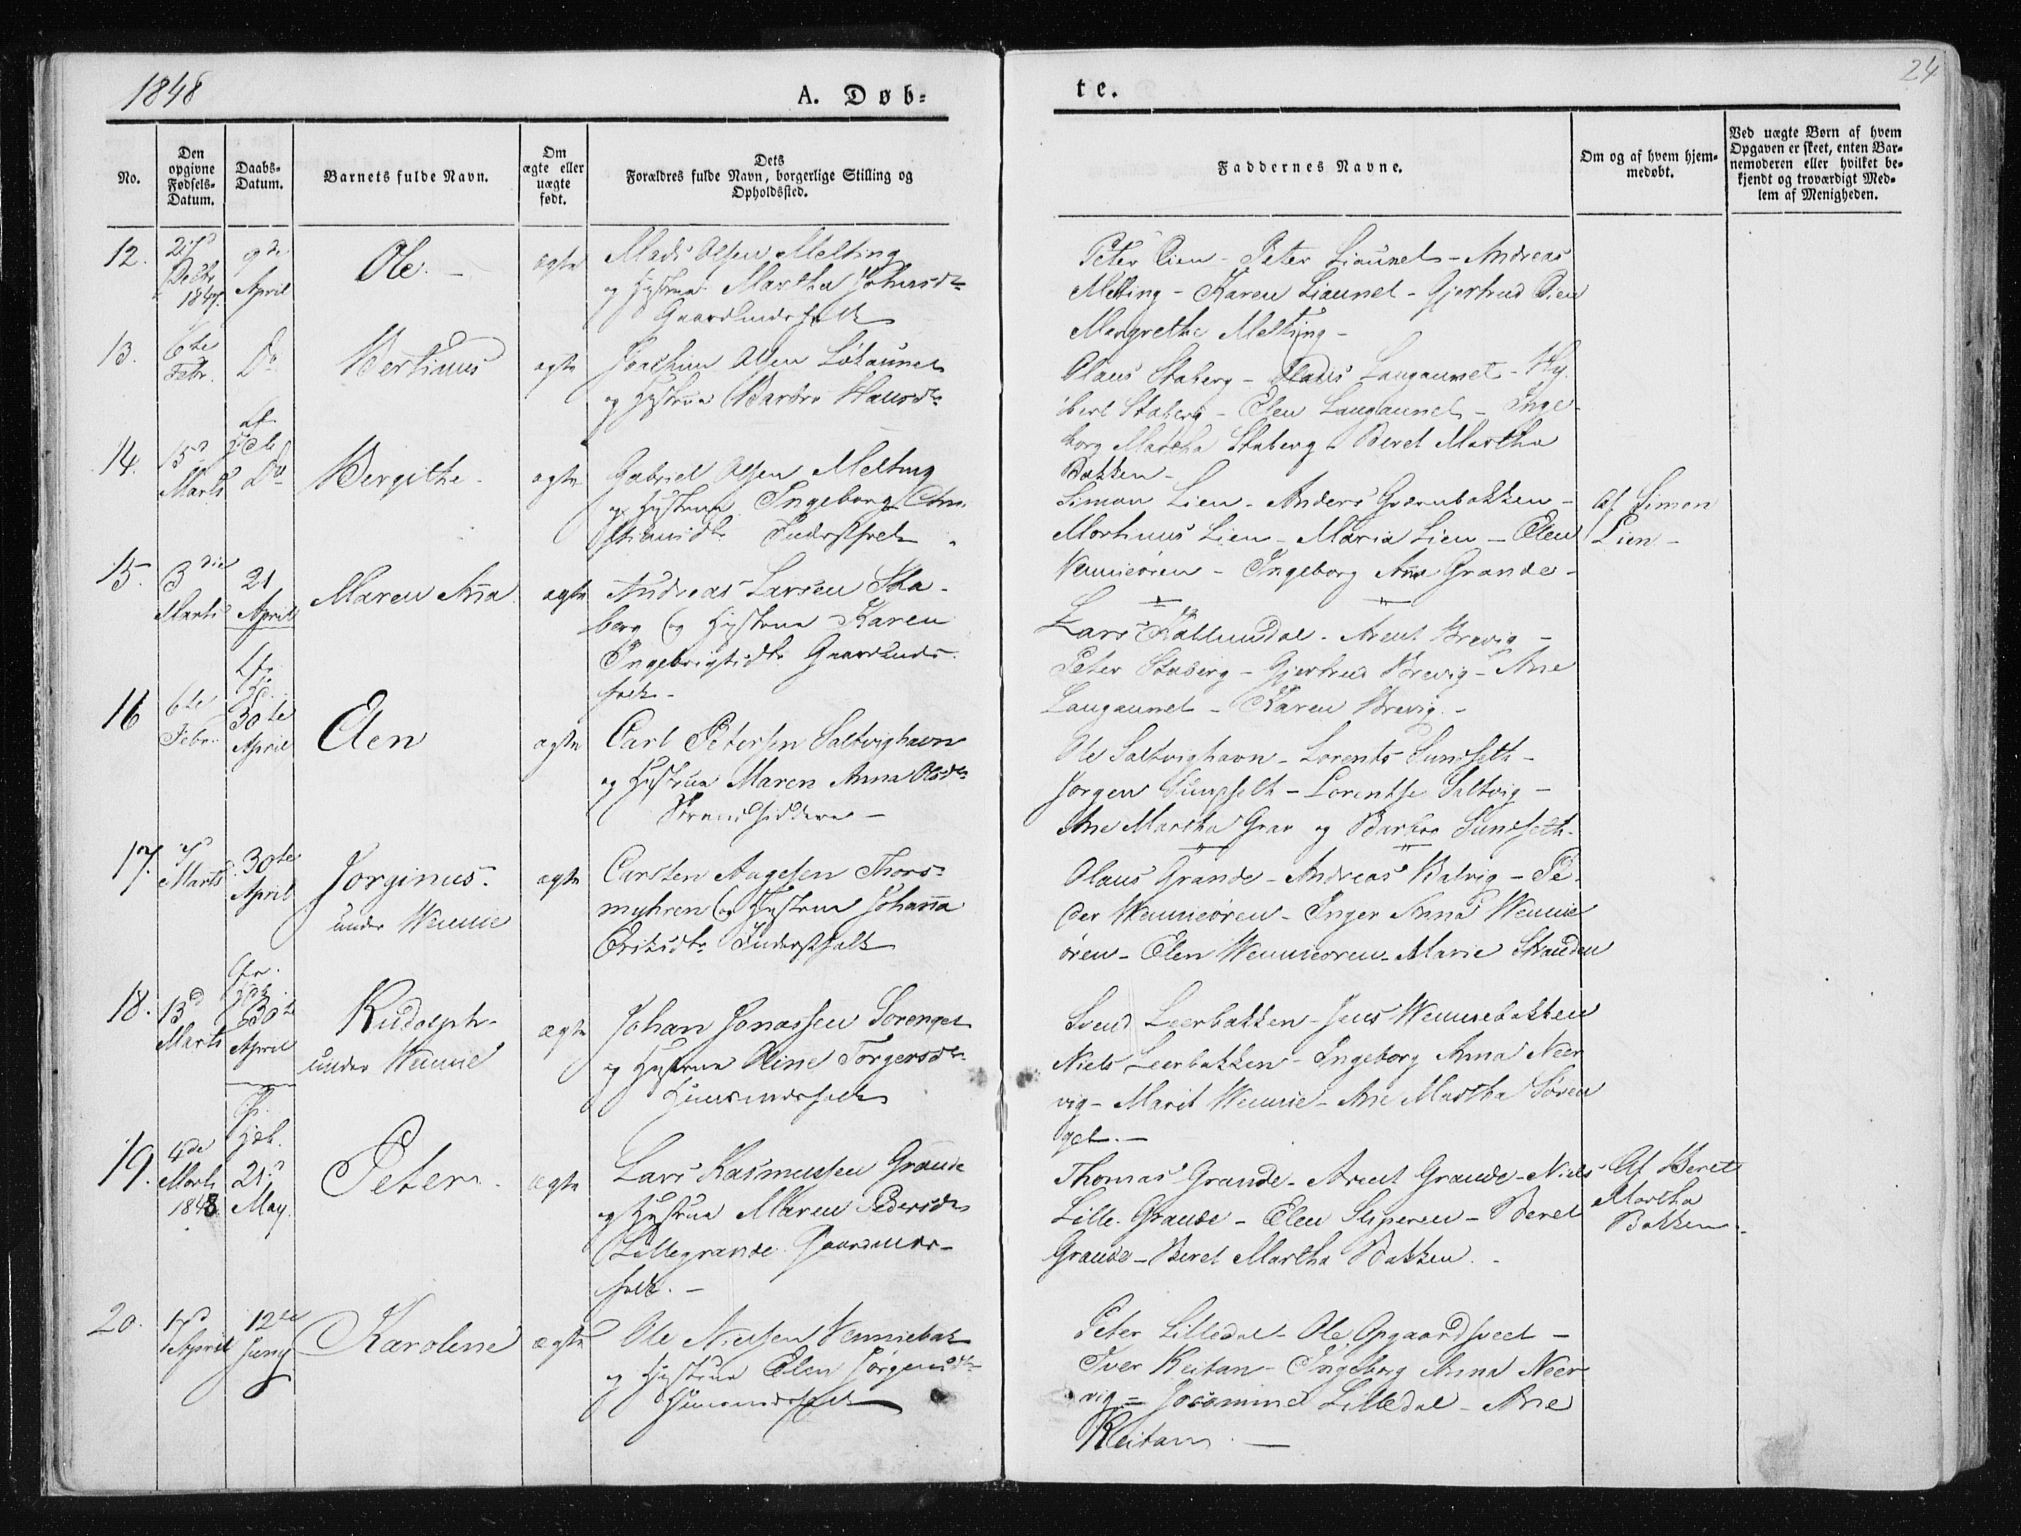 1848
A. Døb-
te.
24
No.
Den opgivne Fødsels-Datum.
Daabs-Datum.
Barnets fulde Navn.
Om ægte eller uægte født.
Dets Forældres fulde Navn, borgerlige Stilling og Opholdssted.
Faddernes Navne.
Om og af hvem hjem-medøbt.
Ved uægte Børn af hvem Opgaven er skeet, enten Bar-nemoderen eller hvilket be-kjendt og troværdigt Med-lem af Menigheden.
12.
Decbr 1847.
9de April
Ole. -
ægte
Mads Olsen Melting
og Hustrue Martha Johnsdr
Gaardmandsfolk
Peter Lien - Peter Liaunet - Andreas
Melting - Karen Liaunet - Gjertrud Lien
Margrethe Melting -
13.
6te Febr.
Do
Bertinus
ægte
Joachim Olsen
og Hustrue Barbro Hansdr
Olaus Staberg - Mads Langaunet -
Staberg - Elen Langaunet - Inge-
borg Martha Staberg - Beret Martha
Bakken -
14.
15d Marts
Do
Bergithe -
ægte
Gabriel Olsen Melting
og Hustrue Ingeborg Chri-
stiansdtr Inderstfolk
Simon Lien - Anders Qvernbakken -
Mortinus Lien - Maria Lien - Elen
Vennieøren - Ingeborg Ana Grande -
Af Simon
Lien -
15.
3die Marts
21 April
Maren Ana
ægte
Andreas Larsen Sta-
berg og Hustrue Karen
Ingebrigtsdtr Gaardmands-
folk -
Lars Kallumdal - Arent Brevig -
Peter Staberg - Gjertrud Brevig - Ane
Langaunet - Karen Brevig -
16
6te Febr.
30te April
Elen
ægte
Carl Petersen Saltvighavn
og Hustrue Maren Anna Olsdr
Strandsiddere -
Ole Saltvighavn - Lorents Sundseth -
Jørgen Sundseth - Lorentse Saltvig -
Ane Martha Grav og Barbro Sundseth -
17.
7 Marts
30te April
Jørginus.
under Wennie
ægte
Carsten Aagesen Thors-
myhren og Hustrue Johanna
Eriksdtr Inderstfolk
Olaus Grande - Andreas Balvig - Pe-
der Wennieøren - Inger Anna Wennie
øren - Elen Wennieøren - Marie Stranden
18.
13d Marts
30te April
Rudolph -
under Wennie
ægte
Johan Jonassen Sørenget
og Hustrue Oline Torgersdr
Huusmandsfolk
Svend Leerbakken - Jens Wenniebakken
Niels Leerbakken - Ingeborg Anna Neer-
vig - Marit Wennie - Ane Martha Søren
get. -
19.
4de Marts 1848
21d May.
Peter -
ægte
Lars Rasmussen Grande
og Hustrue Maren Pedersdr
Lillegrande Gaardmands-
folk. -
Thomas Grande - Arent Grande - Niels
Lille Grande - Elen Sliperen - Beret
Grande - Beret Martha Bakken. -
Af Beret
Martha
Bakken -
20.
17d April
12te Juny
Karolene
ægte
Ole Nielsen Venniebak
og Hustrue Elen Jørgensdr
Huusmandsfolk
Peter Lilledal - Ole Opgaardhvet -
Iver Reitan - Ingeborg Anna Neer-
vig = Josamine Lilledal - Ane
Reitan. -